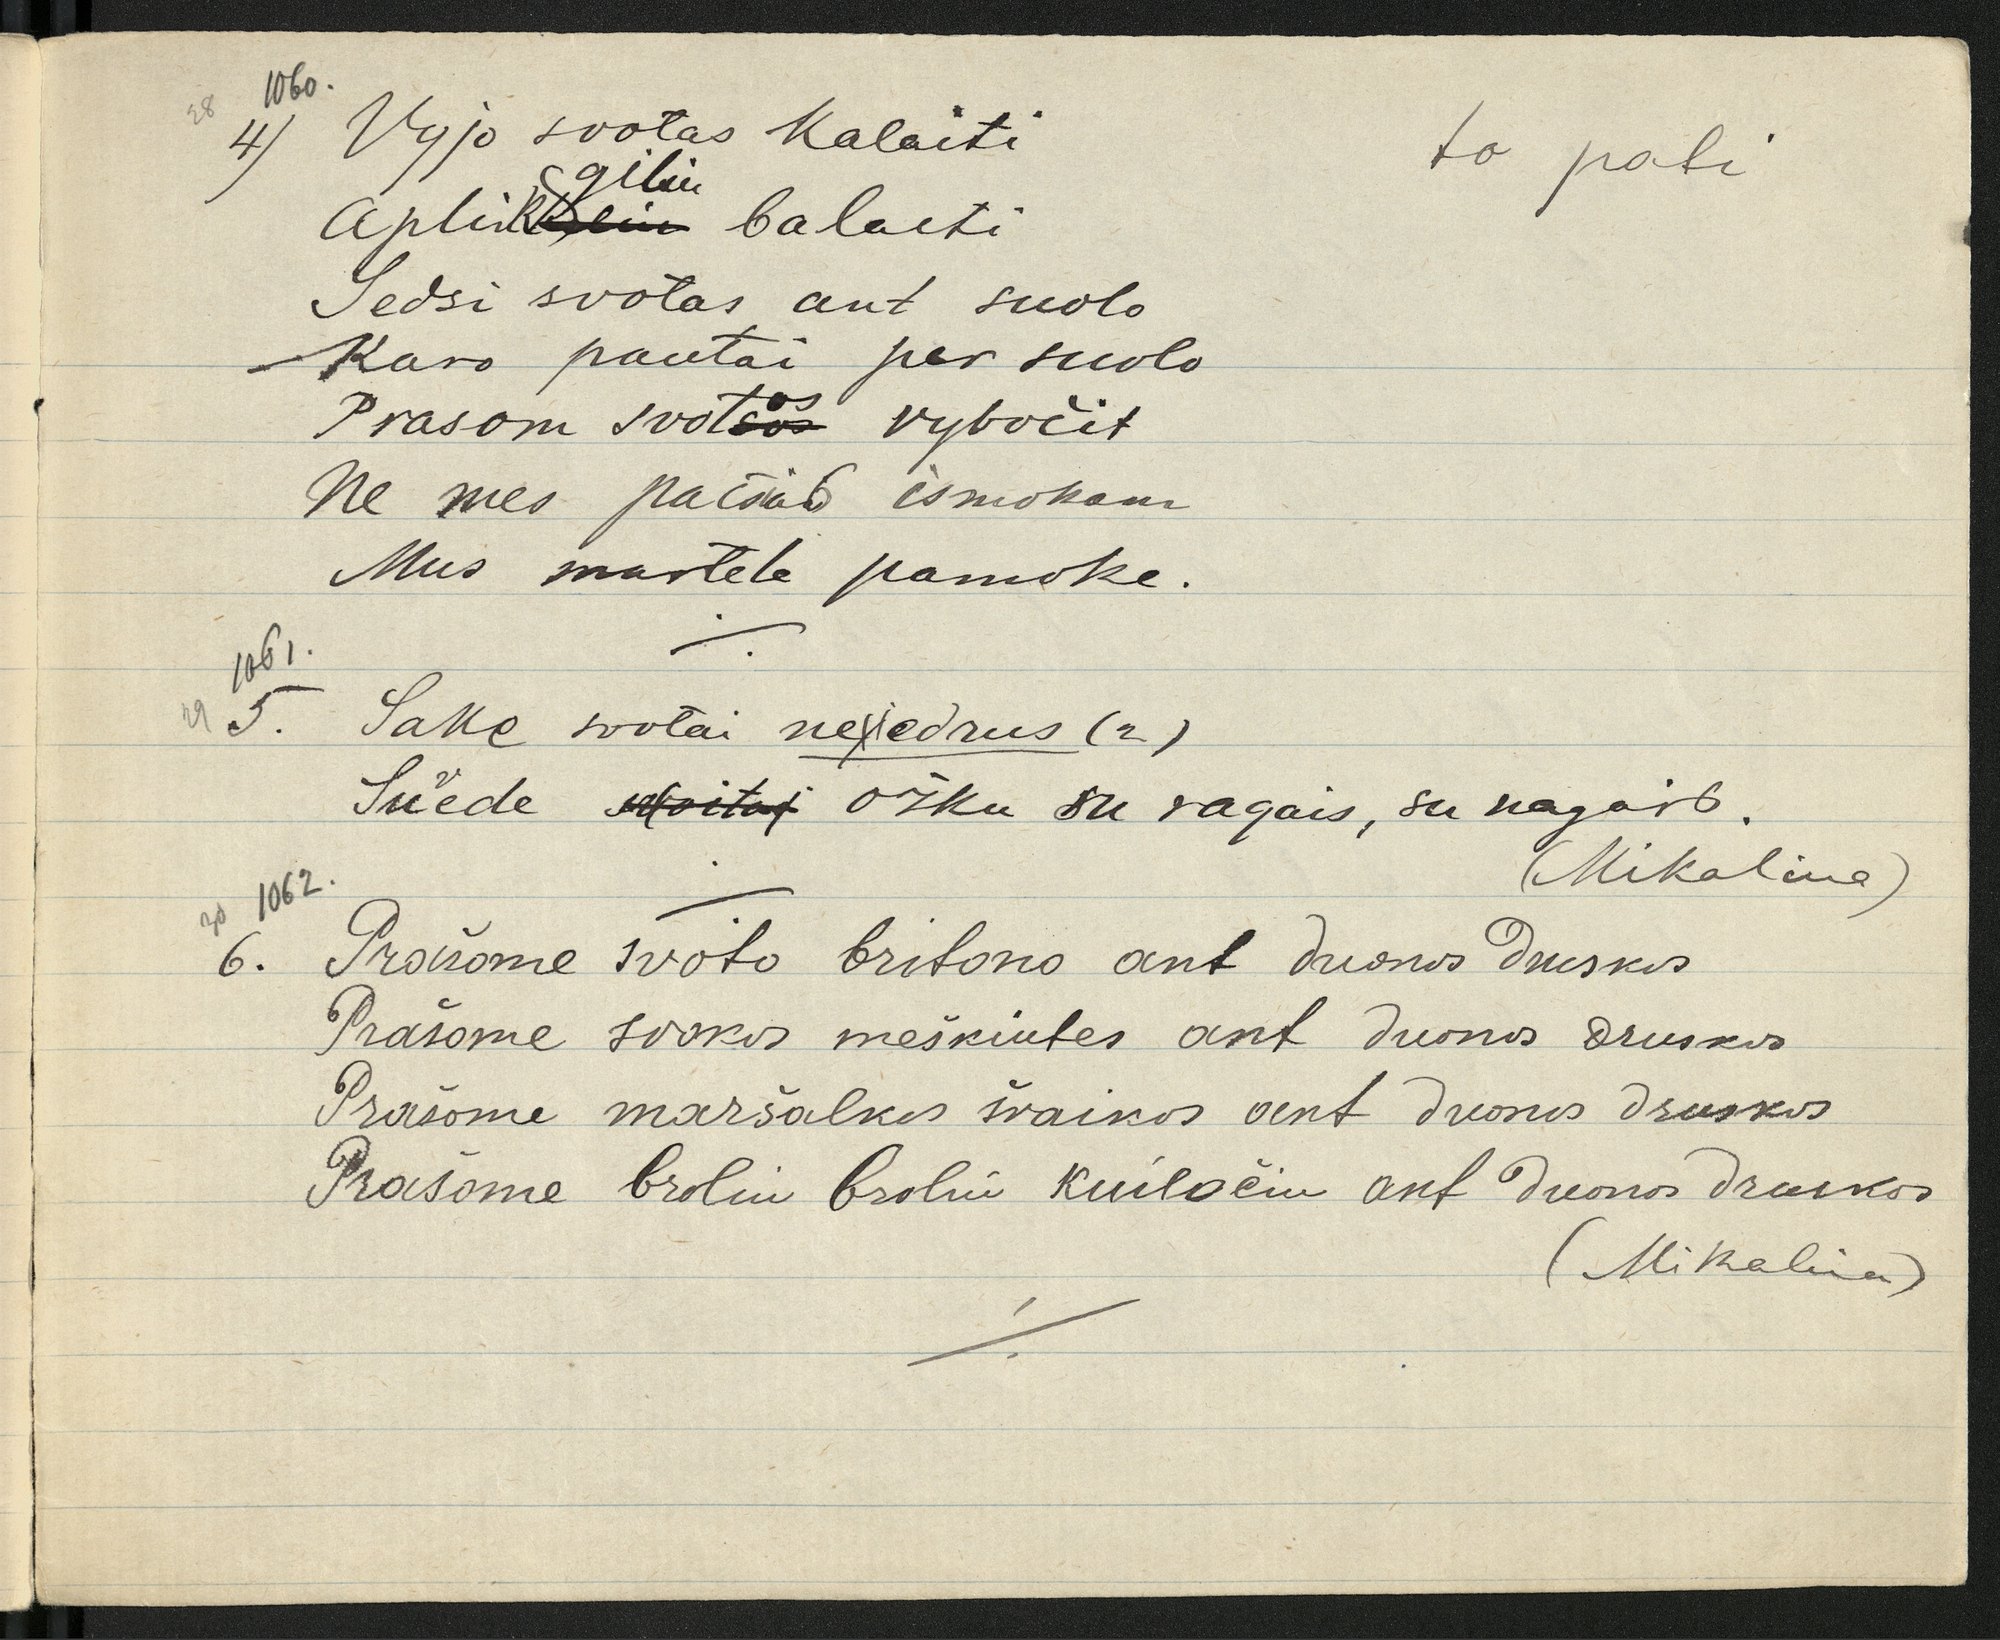 28 1060.
4) Vyjo svotas Kalaiti to pati
Aplink giliu balaiti
Sedsi svotas ant suolo
Karo pautai per suolo
Prasom svotos vybočit
Ne mes pačias ismokam
Mus martele pamoke.
29 1061.
5. Sake svotai neėedrus (2)
Suėde ožku su ragais, su nagais.
(Mikalina)
30 1062.
6. Prašome svoto britono ant duonos druskos
Prašome svokos meškiutes ant duonos druskos
Prašome maršalkos švaikos ant duonos druskos
Prašome broliu broliu kuiločiu ant duonos druskos
(Mikalina)